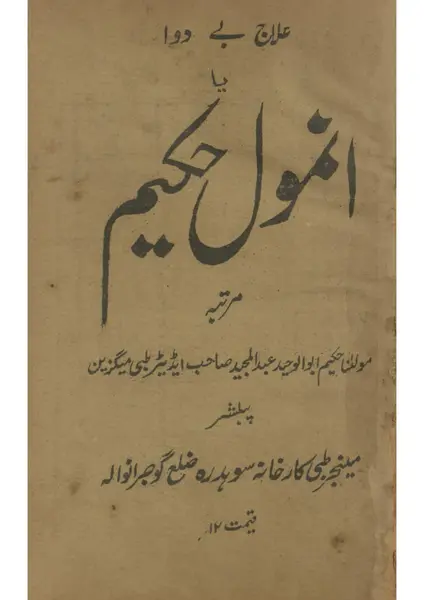 علاج بے دوا
یا
انمول حکیم
مرتبہ
مولٰنا حکیم ابوالوحید عبدالمجید صاحب ایڈیٹر طبی میگزین
پبلشر
مینجر طبی کارخانہ سوہدرہ ضلع گوجرانوالہ
قیمت ۱۲؍